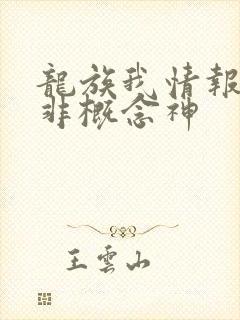 龍族我情報
非概念神
王雲山